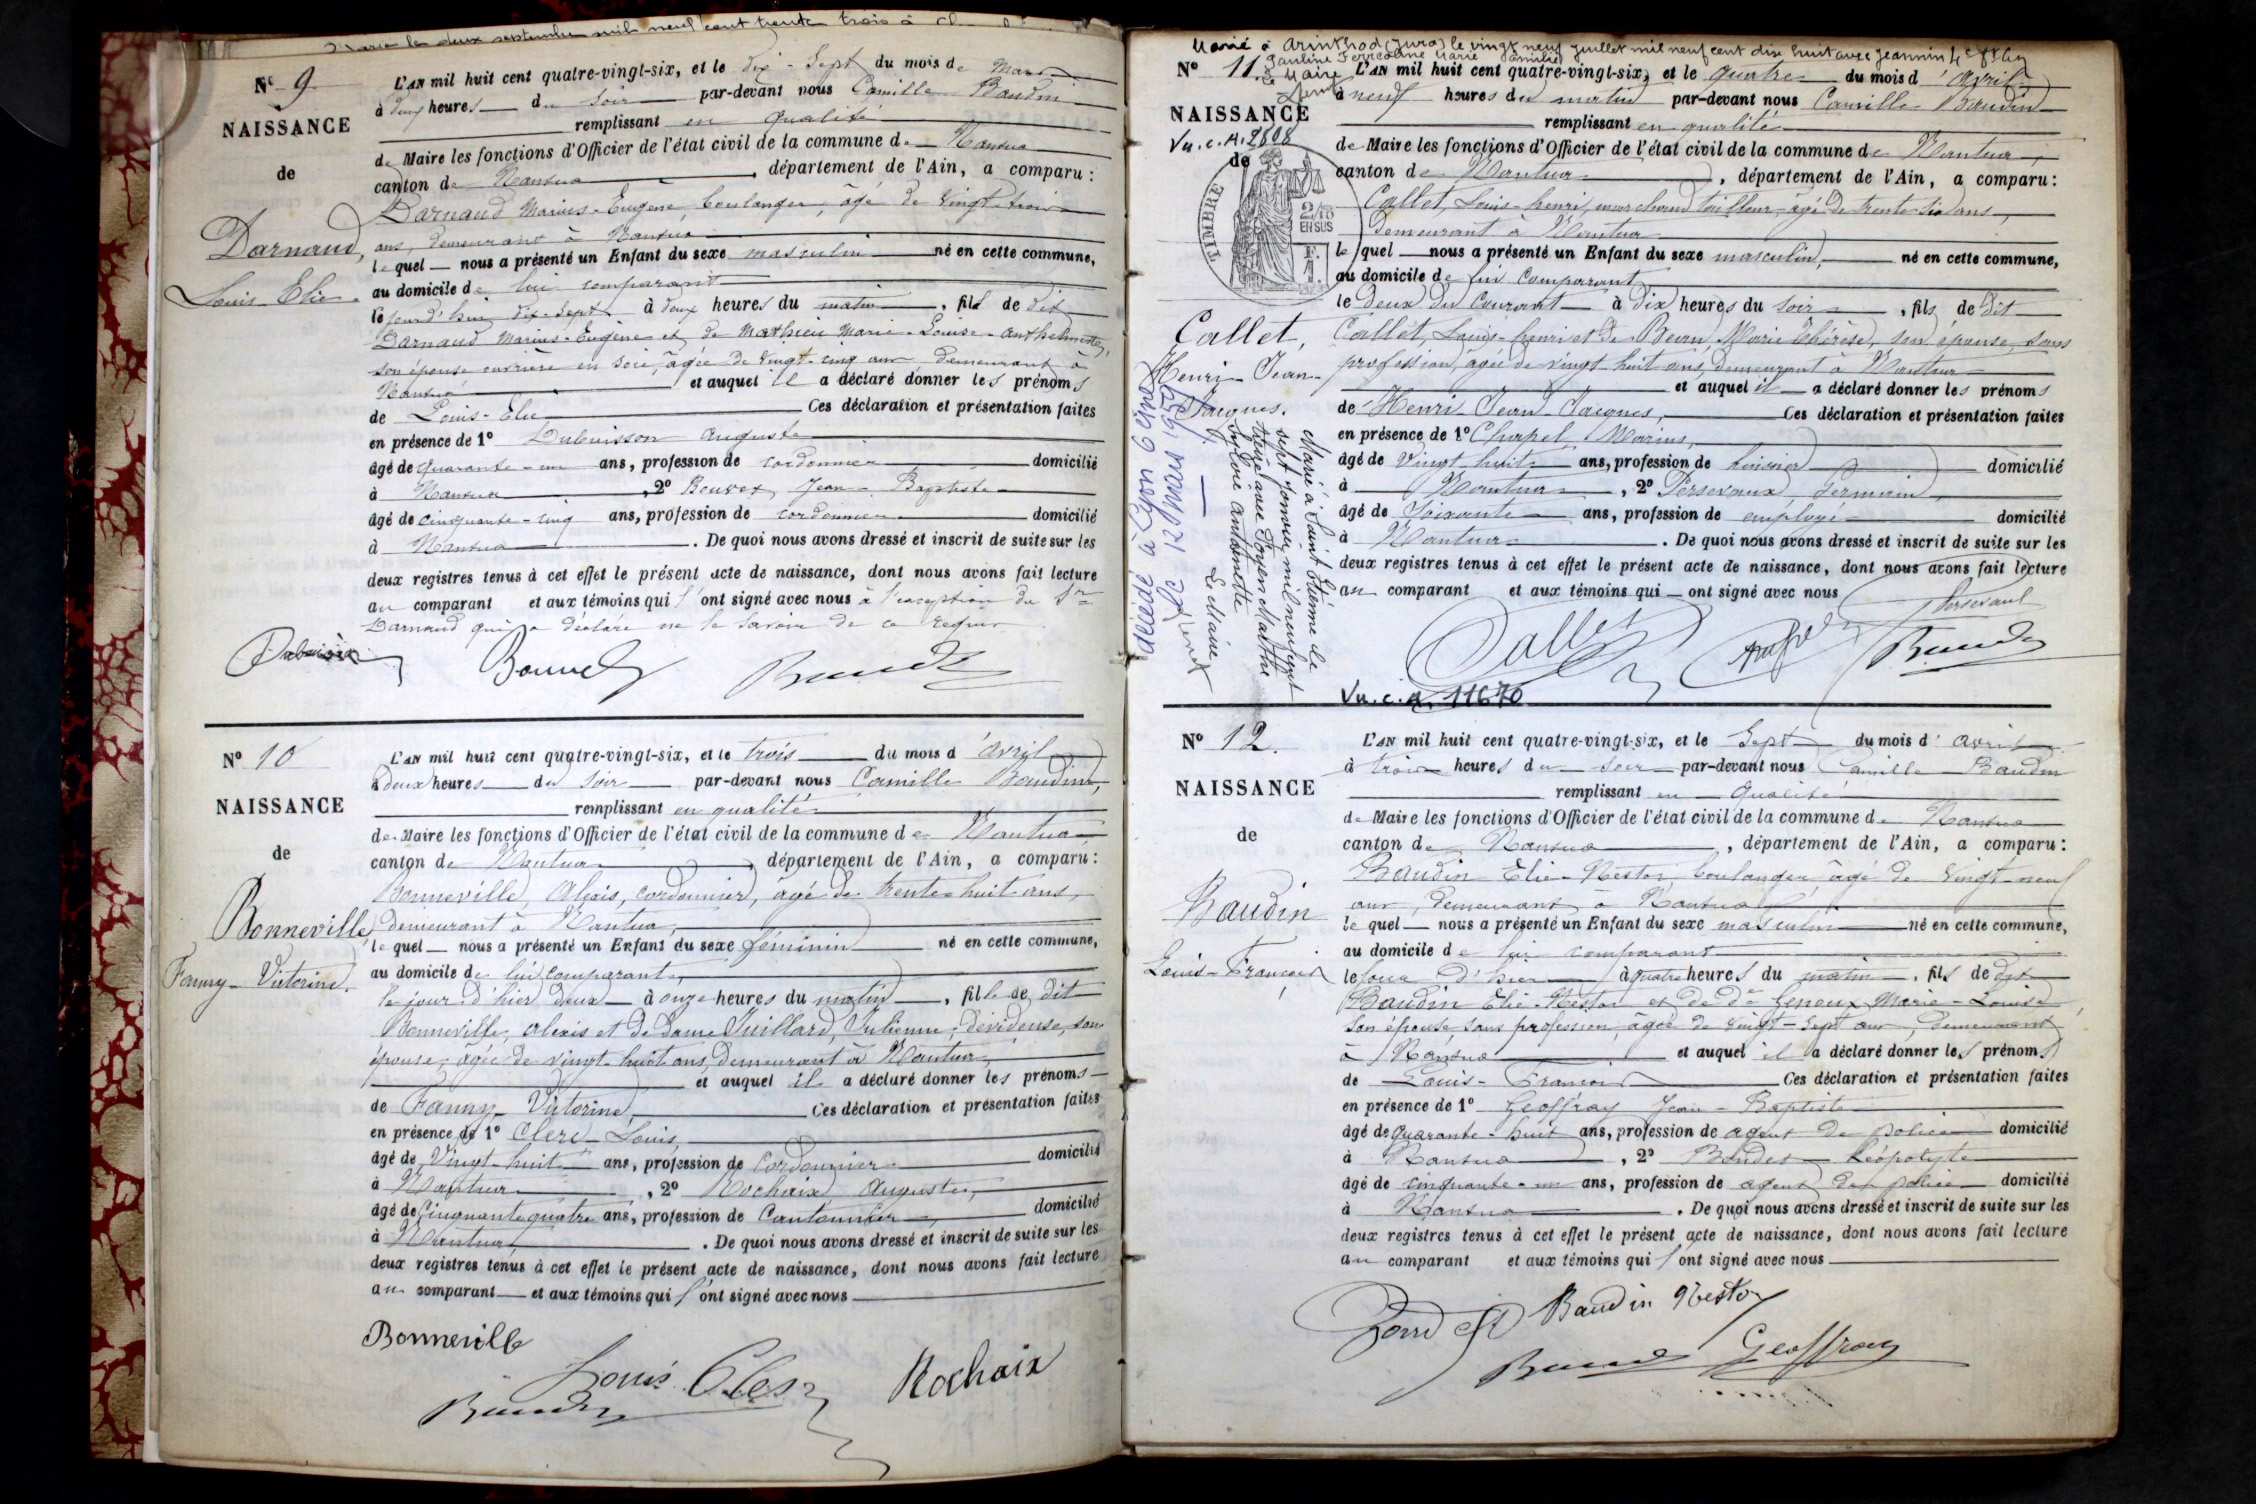 le deux septembre mil neuf cent trente trois à
N° 9
NAISSANCE
de
Darnaud,
Louis-Elie.
L'AN mil huit cent quatre-vingt-six, et le dix-sept du mois de Mars
à deux heures du soir par-devant nous Camille Baudin
remplissant en qualité
de Maire les fonctions d'Officier de l'état civil de la commune de Nantua
canton de Nantua, département de l'Ain, a comparu:
Darnaud Marius-Eugène, boulanger, âgé de vingt-trois
ans, demeurant à Nantua
lequel nous a présenté un Enfant du sexe masculin né en cette commune,
au domicile de lui comparant
le jourd'hui dix-sept à deux heures du matin, fils de dit
Darnaud Marius-Eugène et de Mathieu Marie-Louise-Anthelmette,
son épouse ouvrière en soie, âgée de vingt-cinq ans demeurant à
Nantua et auquel il a déclaré donner les prénoms
de Louis-Elie Ces déclaration et présentation faites
en présence de 1° Dubuisson Auguste
âgé de quarante-un ans, profession de cordonnier domicilié
à Nantua, 2° Bouvet Jean-Baptiste
âgé de cinquante-cinq ans, profession de cordonnier domicilié
à Nantua. De quoi nous avons dressé et inscrit de suite sur les
deux registres tenus à cet effet le présent acte de naissance, dont nous avons fait lecture
au comparant et aux témoins qui l'ont signé avec nous à l'exception du Sr
Darnaud qui a déclaré ne le savoir de ce requis
N° 10
NAISSANCE
de
Bonneville
Fanny-Victorine.
L'AN mil huit cent quatre-vingt-six, et le trois du mois d'avril
à deux heures du soir par-devant nous Camille Baudin,
remplissant en qualité
de Maire les fonctions d'Officier de l'état civil de la commune de Nantua
canton de Nantua, département de l'Ain, a comparu:
Bonneville, Alexis, cordonnier, âgé de trente-huit ans,
demeurant à Nantua,
lequel nous a présenté un Enfant du sexe féminin né en cette commune,
au domicile de lui comparant,
le jour d'hier deux à onze heures du matin, fille de dit
Bonneville, Alexis et de dame Juillard, Julienne, dévideuse, son
épouse, âgée de vingt-huit ans, demeurant à Nantua,
et auquel il a déclaré donner les prénoms
de Fanny-Victorine, Ces déclaration et présentation faites
en présence de 1° Clerc Louis,
âgé de Vingt-huit ans, profession de Cordonnier domicilié
à Nantua, 2° Rochaix Auguste,
âgé de Cinquante quatre ans, profession de Cantonnier, domicilié
à Nantua, . De quoi nous avons dressé et inscrit de suite sur les
deux registres tenus à cet effet le présent acte de naissance, dont nous avons fait lecture
au comparant et aux témoins qui l'ont signé avec nous
Bonneville
Louis Clerc
Rochaix
Marié à Arinthod (Jura) le vingt neuf juillet mil neuf cent dix huit avec Jeannin
Pauline Ferréoline Marie
Le Maire
N° 11.
NAISSANCE
Vu. c. A. 2808
de
TIMBRE
2/10 EN SUS
Callet,
Henri-Jean-
Jacques.
décédé à Lyon 6ème
le 12 Mars 1959
Marié à Saint Etienne le
sept janvier mil neuf cent
treize avec Foyen Marthe
Sylvie Antoinette
Le Maire
L'AN mil huit cent quatre-vingt-six, et le quatre du mois d'avril
à neuf heures du matin par-devant nous Camille Baudin
remplissant en qualité
de Maire les fonctions d'Officier de l'état civil de la commune de Nantua,
canton de Nantua, département de l'Ain, a comparu:
Callet, Louis-henri, marchand tailleur, âgé de trente-six ans,
demeurant à Nantua
lequel nous a présenté un Enfant du sexe masculin, né en cette commune,
au domicile de lui comparant
le deux du Courant à dix heures du soir, fils de dit
Callet, Louis-henri et de Brun, Marie Thérèse, son épouse, sans
profession, âgée de vingt-huit ans, demeurant à Nantua
et auquel il a déclaré donner les prénoms
de Henri-Jean-Jacques, Ces déclaration et présentation faites
en présence de 1° Chapel, Marius,
âgé de Vingt huit ans, profession de domicilié
à Nantua, 2° Persevaux, Germain,
âgé de Soixante ans, profession de employé domicilié
à Nantua. De quoi nous avons dressé et inscrit de suite sur les
deux registres tenus à cet effet le présent acte de naissance, dont nous avons fait lecture
au comparant et aux témoins qui ont signé avec nous
Callet
Vu. c. a. 11670
N° 12.
NAISSANCE
de
Baudin
Louis-François
L'AN mil huit cent quatre-vingt-six, et le Sept du mois d'avril
à trois heures du soir par-devant nous Camille Baudin
remplissant en qualité
de Maire les fonctions d'Officier de l'état civil de la commune de Nantua
canton de Nantua, département de l'Ain, a comparu:
Baudin Elie-Nestor boulanger âgé de vingt-neuf
ans, demeurant à Nantua
lequel nous a présenté un Enfant du sexe masculin né en cette commune,
au domicile de lui comparant
le jour d'hier à quatre heures du matin, fils de dit
Baudin Elie-Nestor et de de Genoux Marie-Louise
son épouse sans profession, âgée de vingt-sept ans, demeurant
à Nantua et auquel il a déclaré donner les prénoms
de Louis-François Ces déclaration et présentation faites
en présence de 1° Geoffray Jean-Baptiste
âgé de quarante-huit ans, profession de agent de police domicilié
à Nantua, 2°
âgé de cinquante-un ans, profession de agent de police domicilié
à Nantua. De quoi nous avons dressé et inscrit de suite sur les
deux registres tenus à cet effet le présent acte de naissance, dont nous avons fait lecture
au comparant et aux témoins qui l'ont signé avec nous
Baudin Nestor
Geoffray